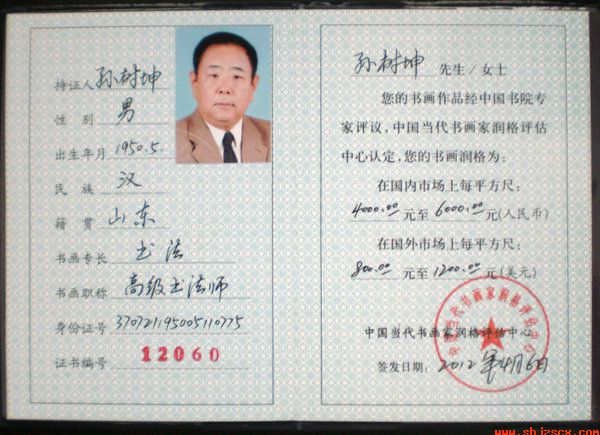 持证人 孙树坤
性别 男
出生年月 1950.5.
民族 汉
籍贯 山东
书画专长 书法
书画职称 高级书法师
身份证号 370721195005110775
证书编号 12060
孙树坤 先生/女士
您的书画作品经中国书院专
家评议，中国当代书画家润格评估
中心认定，您的书画润格为：
在国内市场上每平方尺：
4000.00 元至 6000.00 元(人民币)
在国外市场上每平方尺：
800.00 元至 1200.00 元(美元)
中国当代书画家润格评估中心
中国当代书画家润格评估中心
签发日期：2012年4月6日
www.shizscx.com